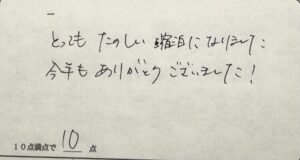 とっても たのしい 宿泊になりました
今年も ありがとう ございました！
10点満点で 10 点